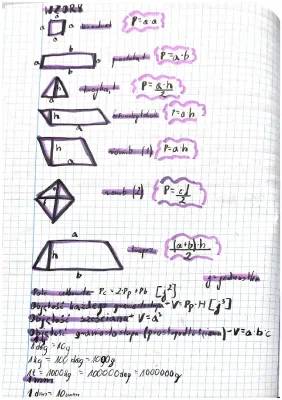 WZORY
a
a a kwadrat P=a·a
a
b
a a prostokąt P=a·b
b
h trójkąt P=a·h/2
a
h równoległobok P=a·h
a
h romb (1) P=a·h
a
romb (2) P=c·d/2
a
h trapez (a+b)·h/2
b
j=jednostka
Pole całkowite Pc=2·Pp+Pb [j²]
Objętość każdego graniastosłupa - V=Pp·H [j³]
Objętość sześcianu - V=a³
Objętość graniastosłupa (prostopadłościanu) - V=a·b·c
1dag=10g
1kg=100dag=1000g
1t=1000kg=100000dag=1000000g
1mm